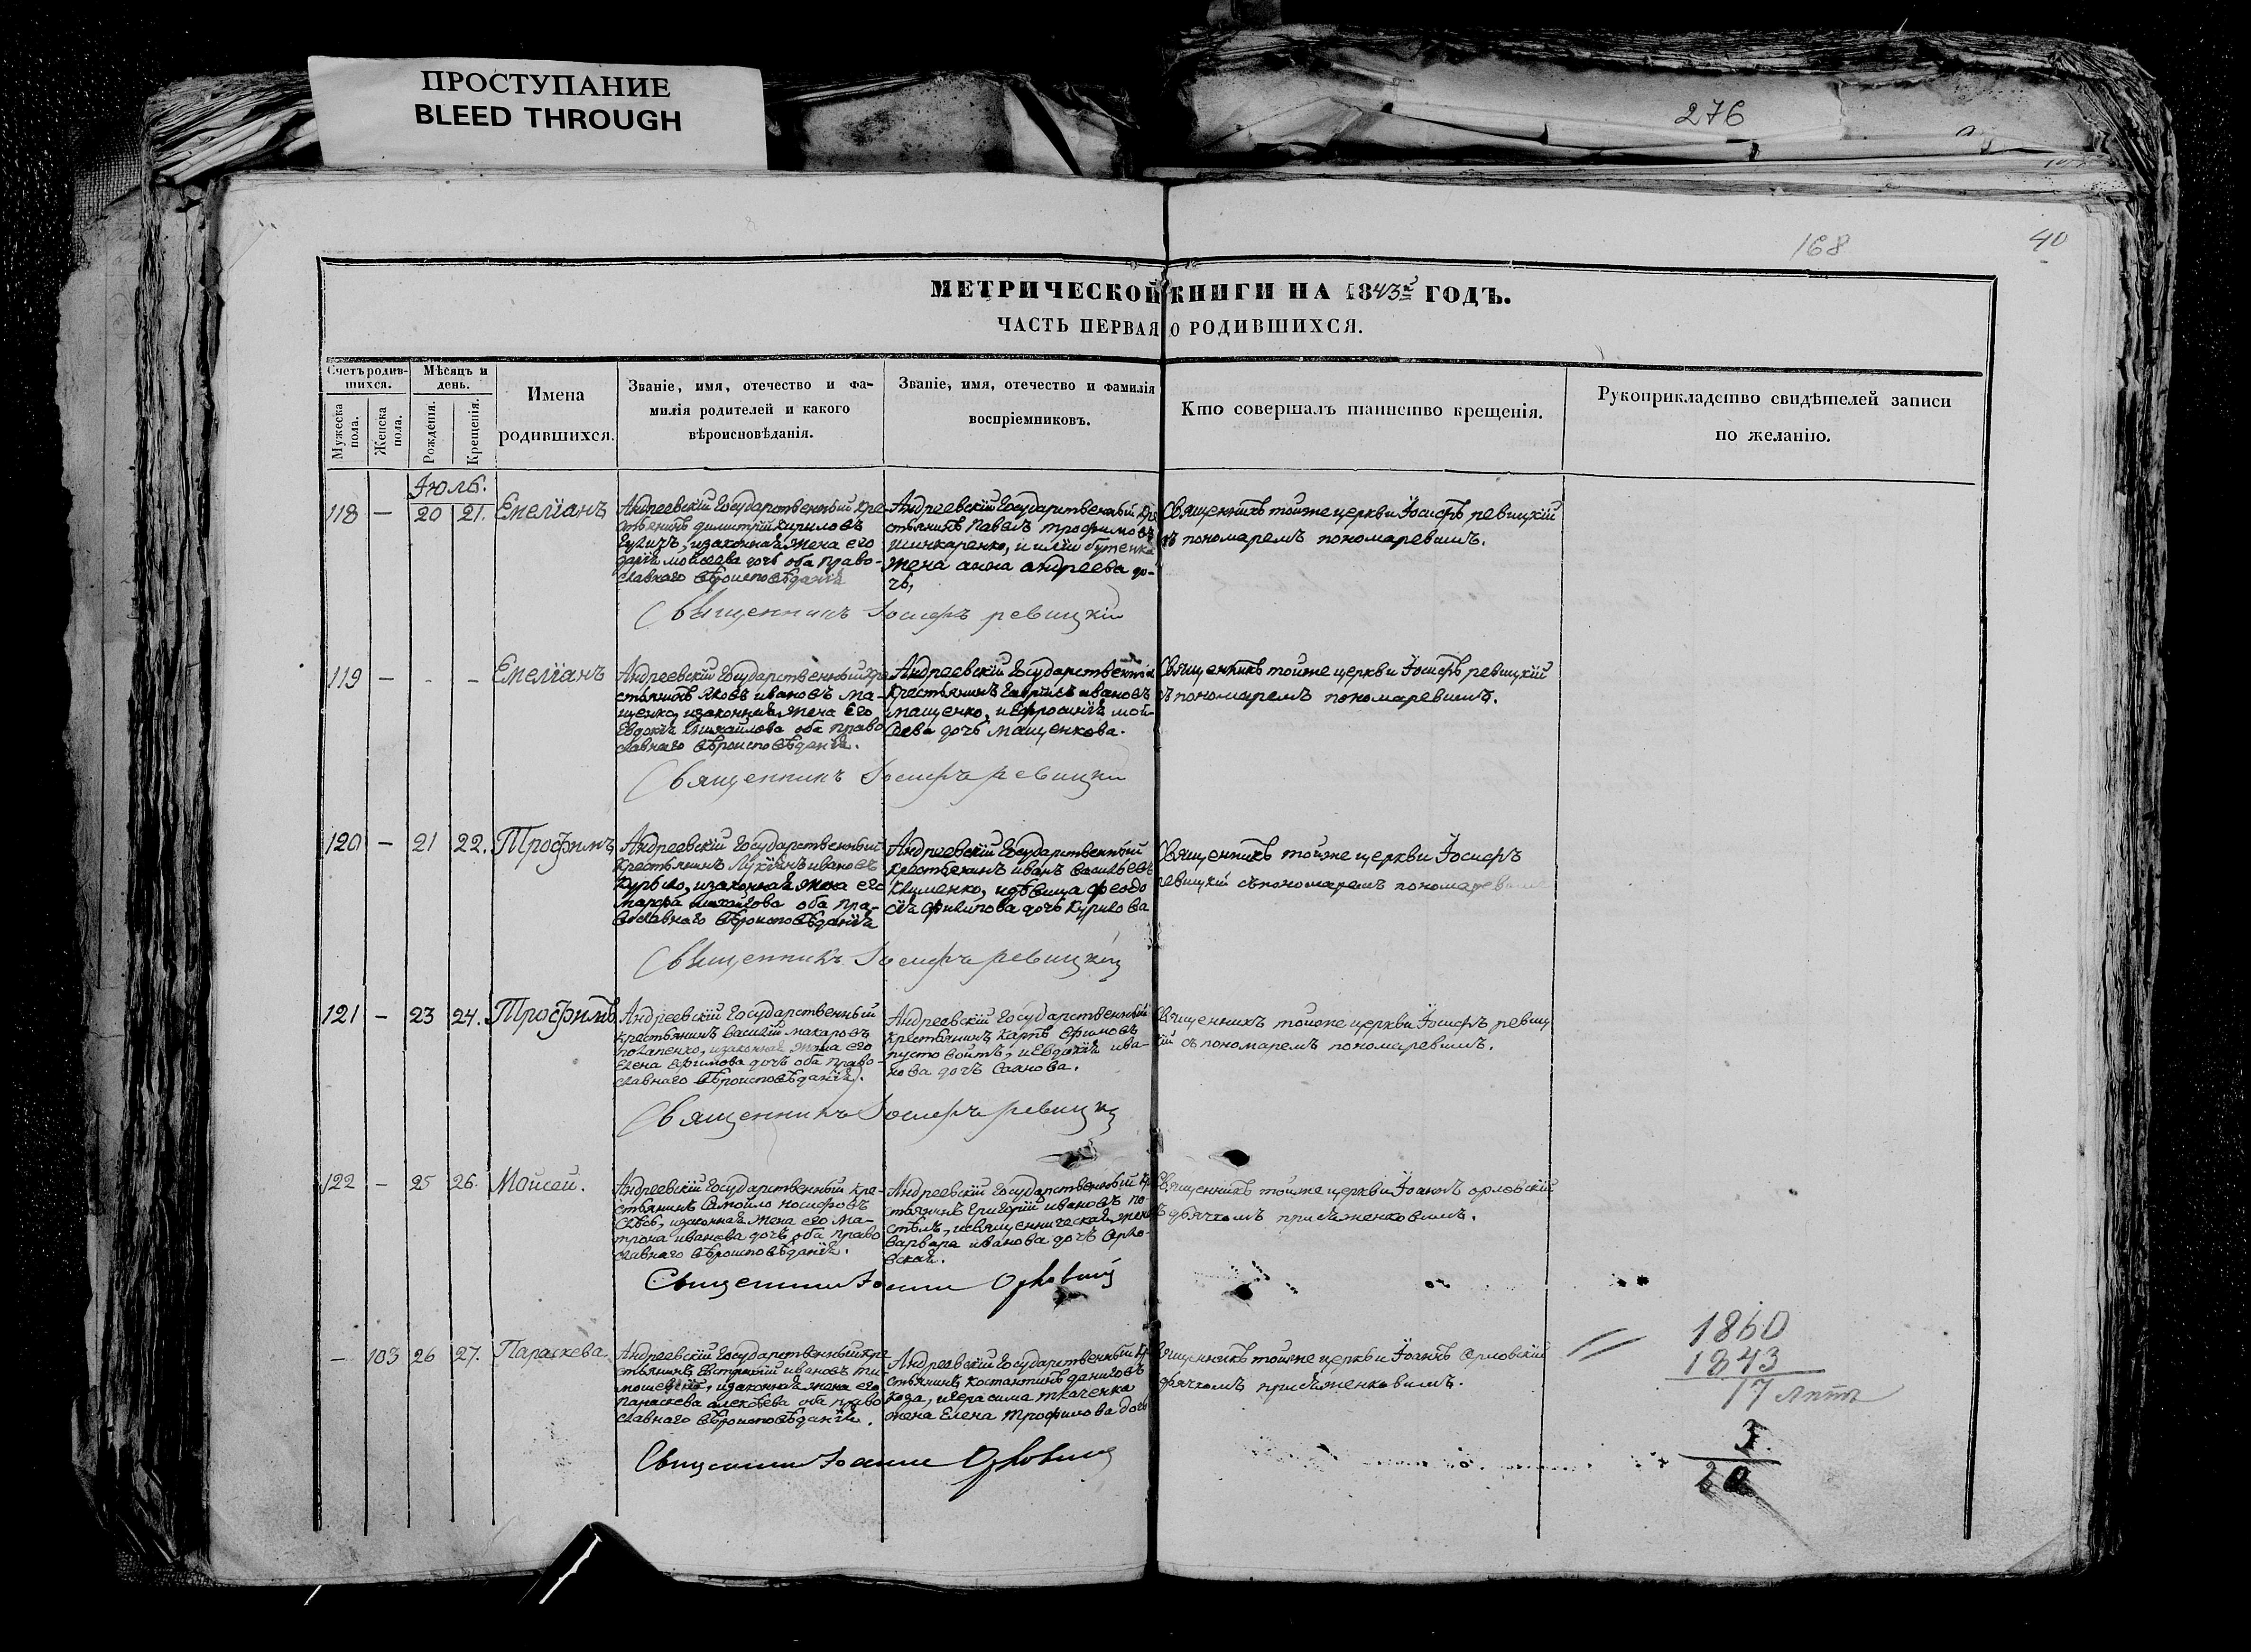 ПРОСТУПАНИЕ
BLEED THROUGH
276
168
40
МЕТРИЧЕСКОЙ КНИГИ НА 1843й ГОДЪ.
ЧАСТЬ ПЕРВАЯ О РОДИВШИХСЯ.
Счетъ родив-
шихся.
Мужеска
пола.
Женска
пола.
Мѣсяцъ и
день.
Рожденія.
Крещенія.
Имена
родившихся.
Званіе, имя, отечество и фа-
милія родителей и какого
вѣроисповѣданія.
Званіе, имя, отечество и фамилія
воспріемниковъ.
Кто совершалъ таинство крещенія.
Рукоприкладство свидѣтелей записи
по желанію.
Іюль.
118 — 20 21. Емеліанъ
Андреевскій Государственный кре-
стьянинъ Димитрій Кириловъ
изаконная жена его
Дарія Моисеева дочь оба право-
славнаго вѣроисповѣданія
Андреевскій Государственный кре
стьянинъ Павелъ Трофимовъ
Шинкаренко, и иліи бутенка
жена анна андреева до-
чь,
Священникъ тойже церкви Іосифъ ревицкій
съ пономаремъ пономаревымъ.
Священникъ Іосифъ ревицкій
119 — - — Емеліанъ
Андреевскій Государственный кре
стьянинъ Яковъ ивановъ ма-
щенко, изаконная жена его
Евдокія Михайлова оба право
славнаго вѣроисповѣданія.
Андреевскій Государственный
крестьянинъ Гавріилъ ивановъ
мащенко, и Ефросинія мои-
сеева дочь мащенкова.
Священникъ тойже церкви Іосифъ ревицкій
съ пономаремъ пономаревымъ.
Священникъ Іосифъ ревицкій
120 — 21 22. Трофимъ
Андреевскій Государственный
крестьянинъ Лукіянъ ивановъ
Курыло, изаконная жена его
Марфа оба пра-
вославнаго вѣроисповѣданія
Андреевскій Государственный
крестьянинъ иванъ васильевъ
Клименко, идѣвица феодо
сія филипова дочь Курилова
Священникъ тойже церкви Іосифъ
ревицкій съпономаремъ пономаревымъ
Священникъ Іосифъ ревицкій
121 — 23 24. Трофимъ
Андреевскій Государственный
крестьянинъ василій макаровъ
потапенко, изаконная жена его
Елена Ефимова дочь оба право-
славнаго вѣроисповѣданія.
Андреевскій Государственный
крестьянинъ Карпъ Ефимовъ
пустовойтъ, и Евдокія ива-
нова дочь Саянова.
Священникъ тойже церкви Іосифъ ревиц
кій съ пономаремъ пономаревымъ.
Священникъ Іосифъ ревицкій
122 — 25 26. Моисей.
Андреевскій Государственный кре-
стьянинъ Самойло иосифовъ
изаконная жена его Ма-
трона иванова дочь оба право
славнаго вѣроисповѣданія.
Андреевскій Государственный кр
стьянинъ Григорій ивановъ по-
исвященническая жена
варвара иванова дочь Орло-
вская.
Священникъ тойже церкви Іоаннъ орловскій
съ дьячкомъ
Священникъ Іоаннъ Орловскій
— 103 26 27. Параскева
Андреевскій Государственный кре
стьянинъ Евстратій ивановъ ти-
изаконная жена его
параскева алексѣева оба право
славнаго вѣроисповѣданія.
Андреевскій Государственный кр
стьянинъ Костантинъ даниловъ
коза, игерасима ткаченка
жена Елена Трофимова дочь
Священникъ тойже церкви Іоаннъ Орловскій
дьячкомъ
Священникъ Іоаннъ Орловскій
1860
1843
17 лѣтъ
3
20